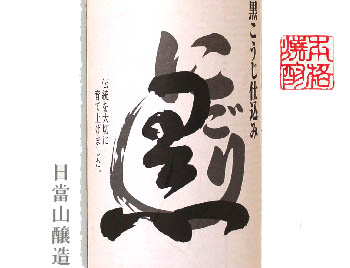 黒こうじ仕込み
にごり
黒
伝統を大切に
育て上げました。
本格
焼酎
日當山醸造